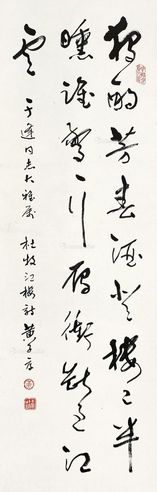 獨酌芳春酒登樓已半
醺誰驚一行雁衝斷過江
雲
于逢同志大雅屬 杜牧江樓詩 黃子厚